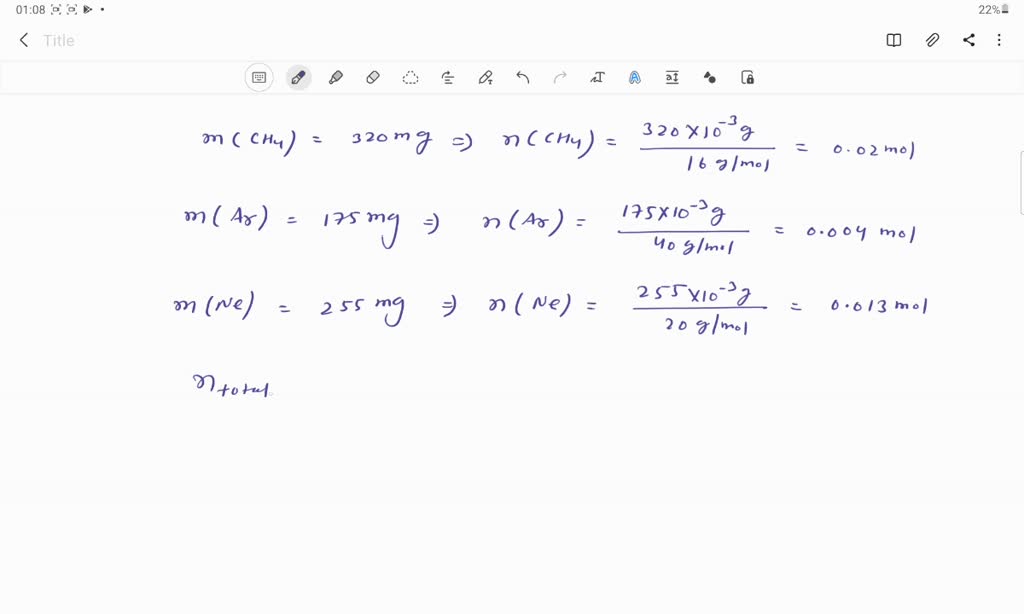 01:08
22%
Title
m(CH4) = 320 mg ⇒ n(CH4) = 320×10⁻³g / 16 g/mol = 0.02 mol
m(Ar) = 175 mg ⇒ n(Ar) = 175×10⁻³g / 40 g/mol = 0.004 mol
m(Ne) = 255 mg ⇒ n(Ne) = 255×10⁻³g / 20 g/mol = 0.013 mol
n total